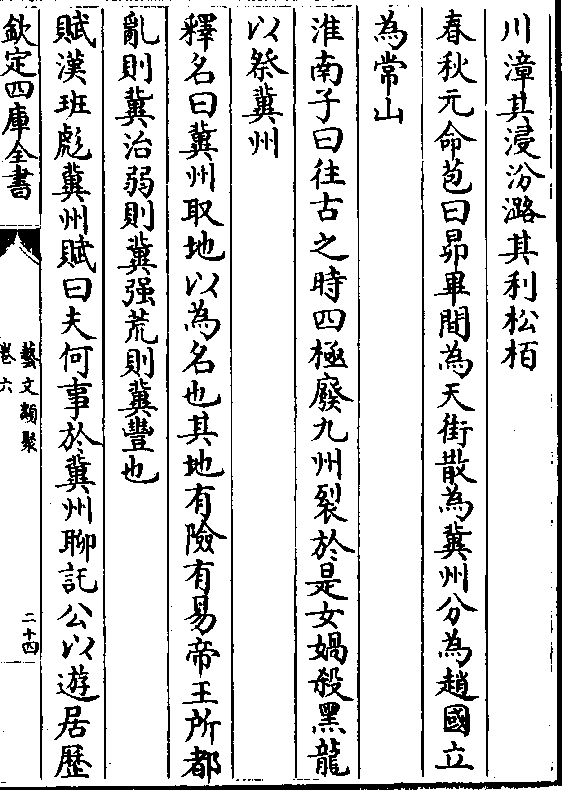 川漳其浸汾潞其利松栢
春秋元命苞曰昴畢間為天街散為冀州分為趙國立
為常山
淮南子曰往古之時四極廢九州裂於是女媧殺黑龍
以祭冀州
釋名曰冀州取地以為名也其地有險有易帝王所都
亂則冀治弱則冀强荒則冀豐也
賦漢班彪冀州賦曰夫何事於冀州聊託公以遊居歴
欽定四庫全書
藝文類聚
卷六
二十四